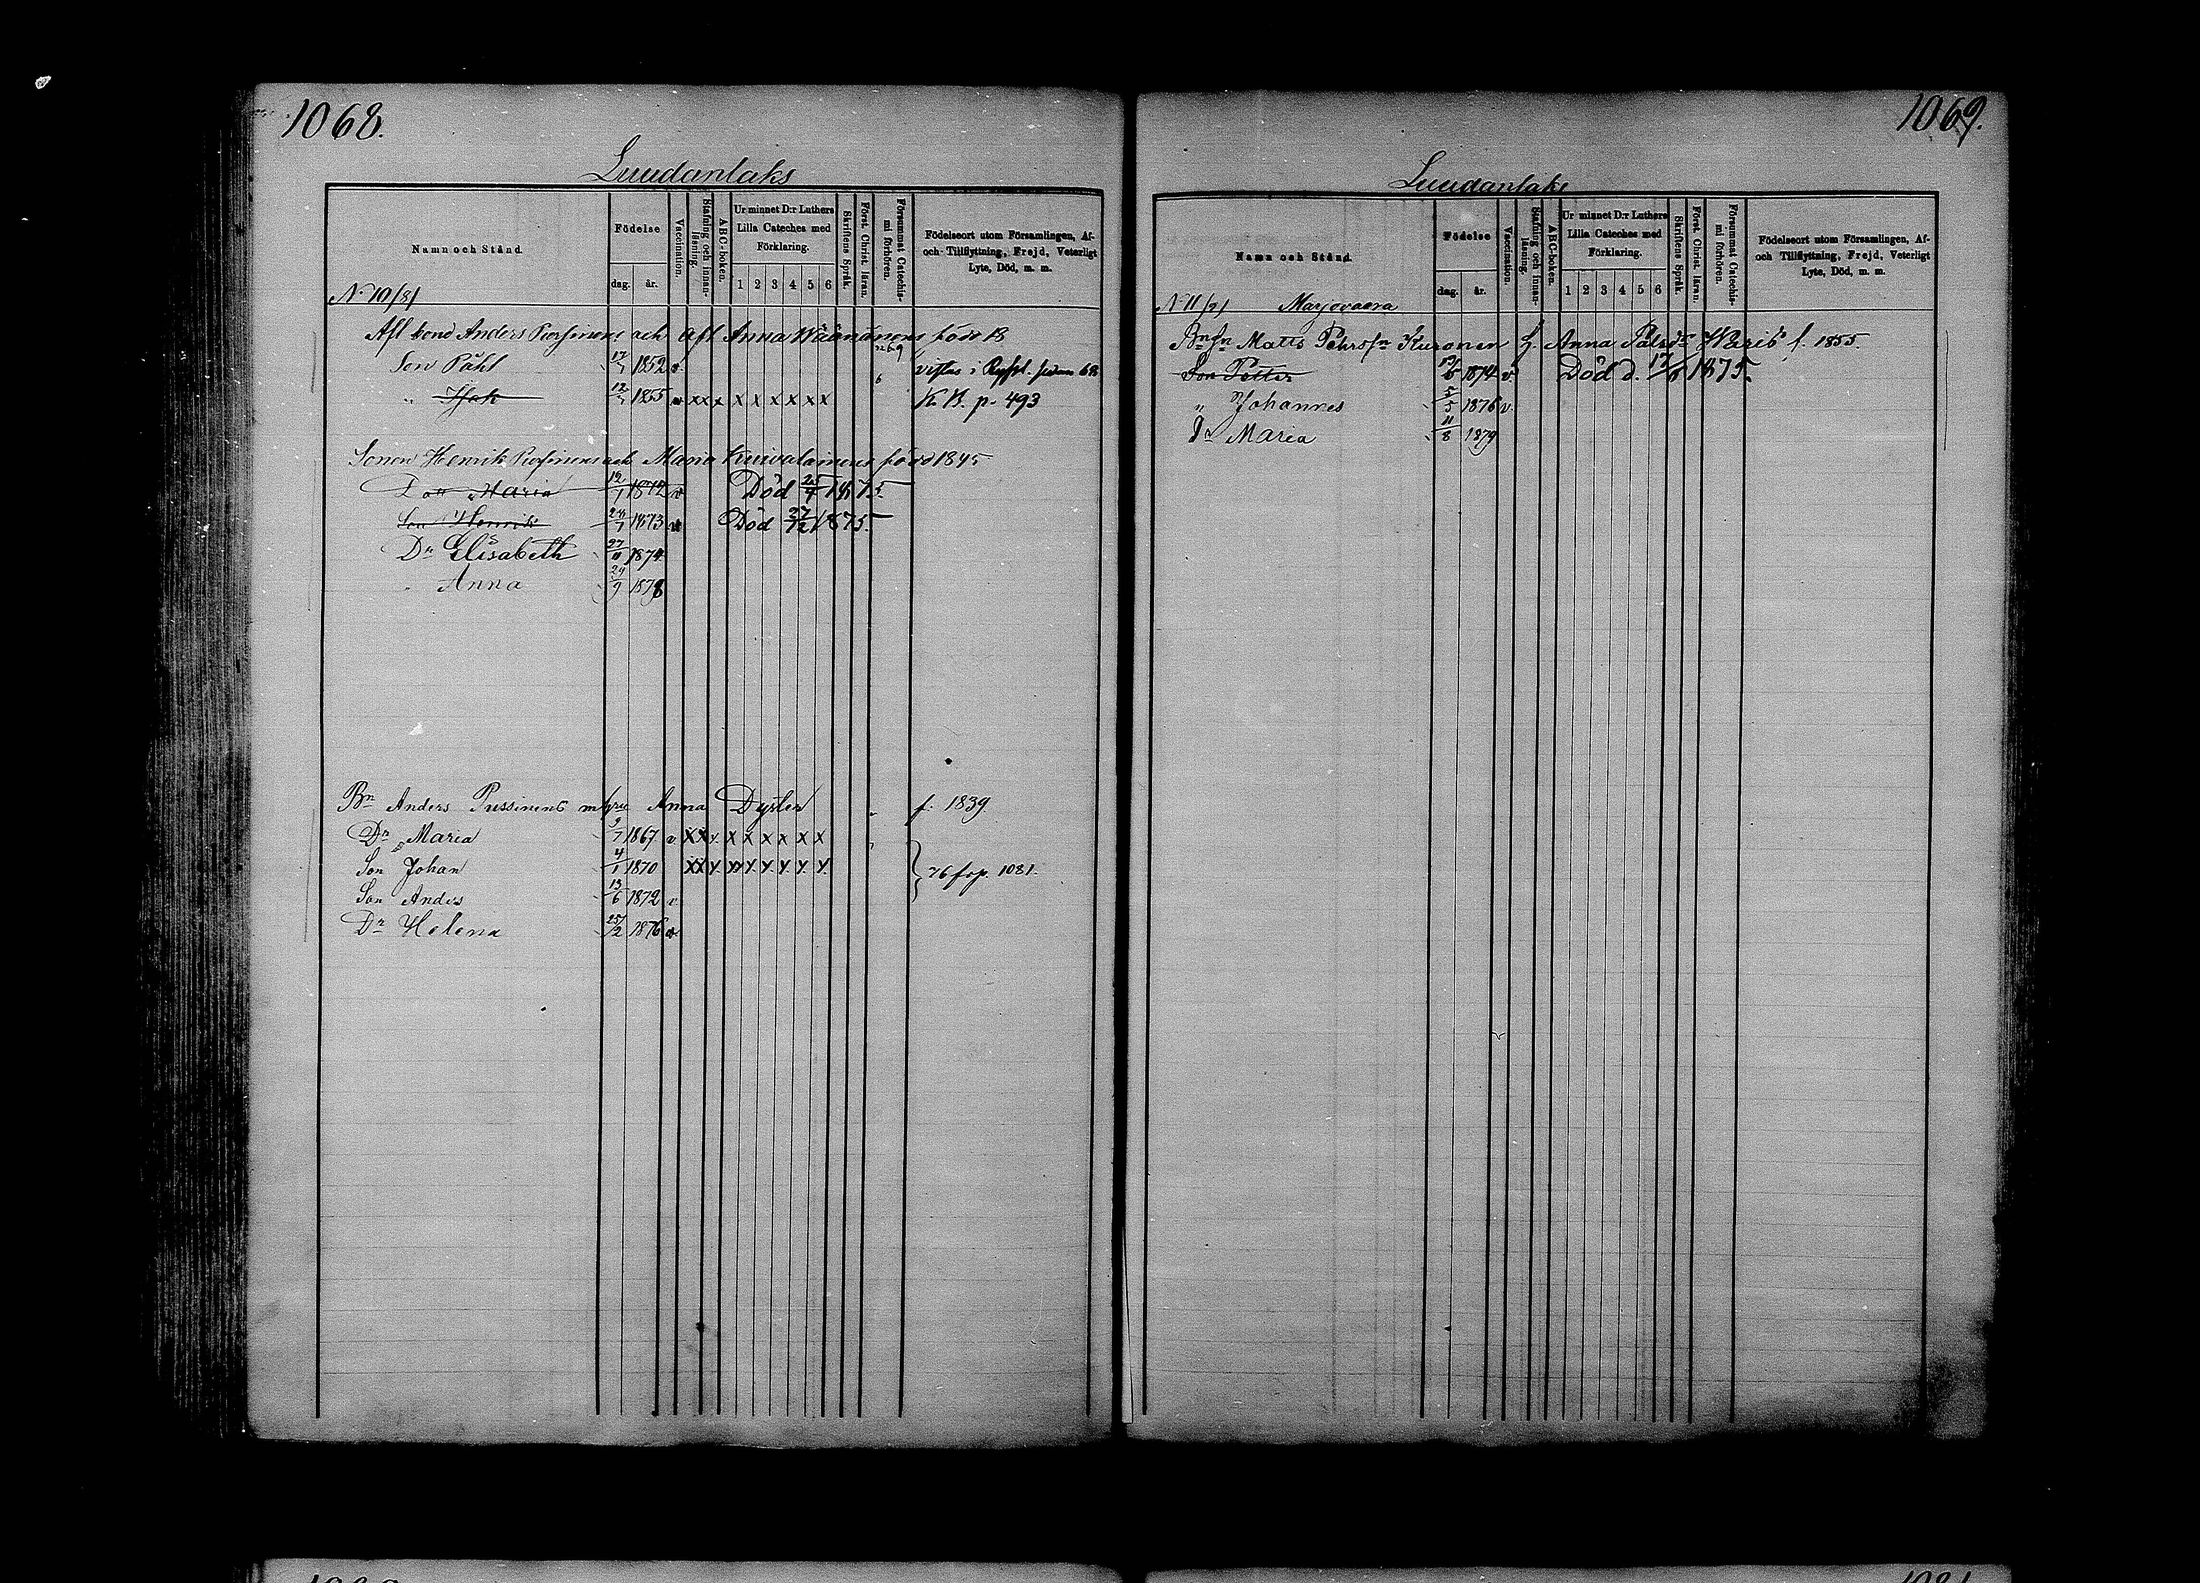 1068.
Luudanlaks
Namn och Stånd.
Födelse
dag. år.
Vaccination.
Stafning och innan-läsning.
ABC-boken.
Ur minnet D:r Luthers
Lilla Cateches med
Förklaring.
1 2 3 4 5 6
Skriftens Språk.
Först. Christ. läran.
Försummat Catechis-mi förhören.
Födelseort utom Församlingen, Af-
och Tillflyttning, Frejd, Veterligt
Lyte, Död, m. m.
N 10/8/
Afl bond Anders och Afl Anna Wäänänens född 18
Son Påhl 17/ 1852 v. vistas i
" Isak 12/ 1855 v x x x x x x x x x K.B. p. 493
Sonen Henrik och Maria Kuivalainens född 1845
Don Maria 12/1 1872 v Död 25/4 1875.
Son Henrik 1873 v Död 27/12 1875.
Dr Elisabeth 1874
" Anna 24/9 1878
Bn Anders Pussinens m hru Anna Dyster f. 1839
Dr Maria 9/7 1867 v x x x x x x x x x
Son Johan 4/1 1870 x x x x x x x x x } 76 fr p. 1081.
Son Anders 13/6 1872 v
Dr Helena 25/2 1876 v
1069.
Luudanlaks
Namn och Stånd.
Födelse
dag. år.
Vaccination.
Stafning och innan-läsning.
ABC-boken.
Ur minnet D:r Luthers
Lilla Cateches med
Förklaring.
1 2 3 4 5 6
Skriftens Språk.
Först. Christ. läran.
Försummat Catechis-mi förhören.
Födelseort utom Församlingen, Af-
och Tillflyttning, Frejd, Veterligt
Lyte, Död, m. m.
N 11/9/ Marjovaara
Matts Pehrsn Kuronen h. Anna Pålsdr f. 1855.
Son Petter 1874 v. Död d. 1875.
" Johannes 5/5 1876 v.
Dr Maria 11/8 1879